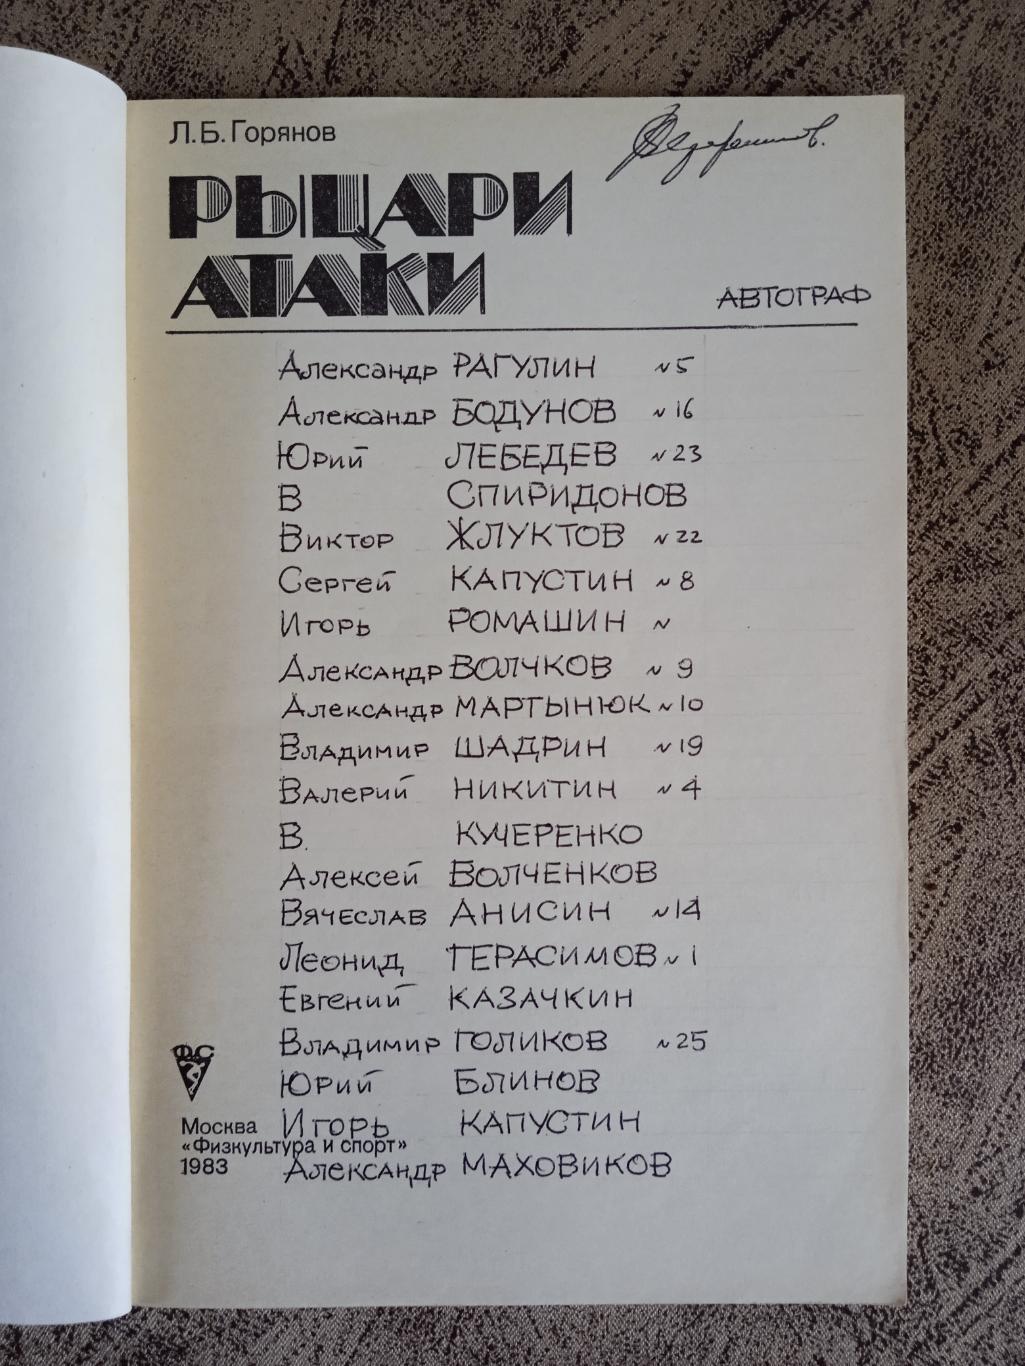 Л.Б.Горянов
РЫЦАРИ
АТАКИ
АВТОГРАФ
Александр РАГУЛИН N5
Александр БОДУНОВ N16
Юрий ЛЕБЕДЕВ N23
В СПИРИДОНОВ
Виктор ЖЛУКТОВ N22
Сергей КАПУСТИН N8
Игорь РОМАШИН N
Александр ВОЛЧКОВ N9
Александр МАРТЫНЮК N10
Владимир ШАДРИН N19
Валерий НИКИТИН N4
В. КУЧЕРЕНКО
Алексей ВОЛЧЕНКОВ
Вячеслав АНИСИН N14
Леонид ГЕРАСИМОВ N1
Евгений КАЗАЧКИН
Владимир ГОЛИКОВ N25
Юрий БЛИНОВ
Игорь КАПУСТИН
Александр МАХОВИКОВ
ФиС
Москва
«Физкультура и спорт»
1983